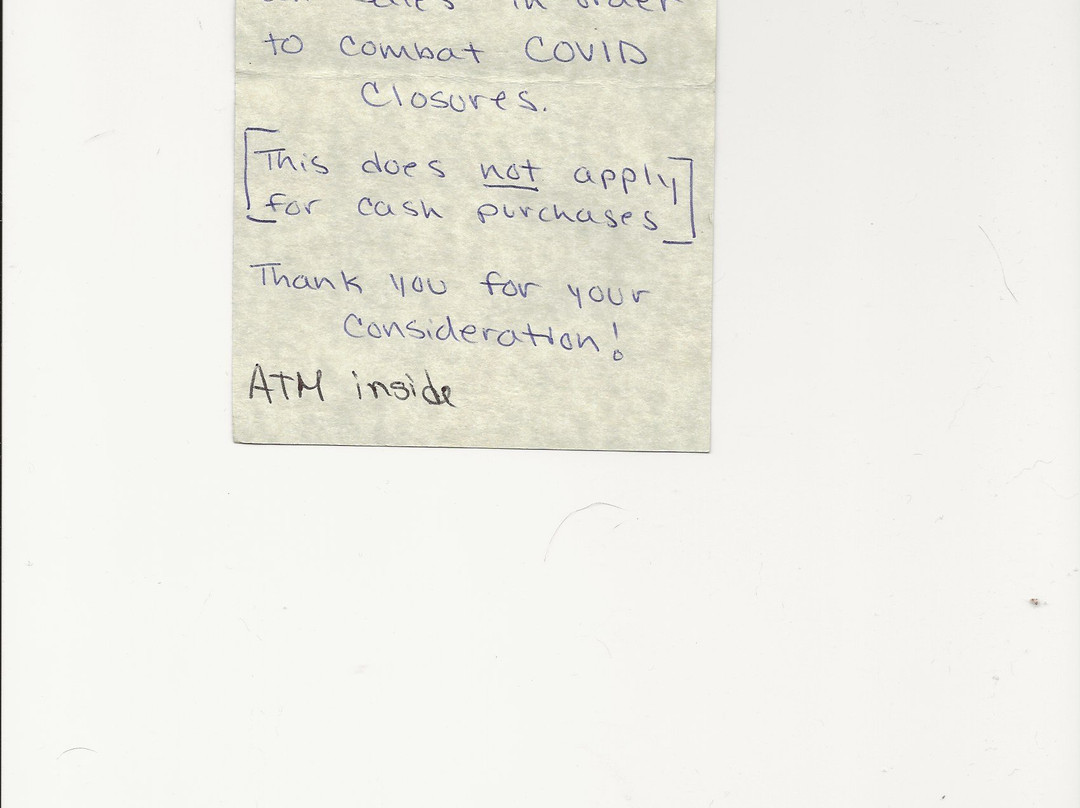 in order
to combat COVID
Closures.
[This does not apply
for cash purchases]
Thank you for your
Consideration!
ATM inside